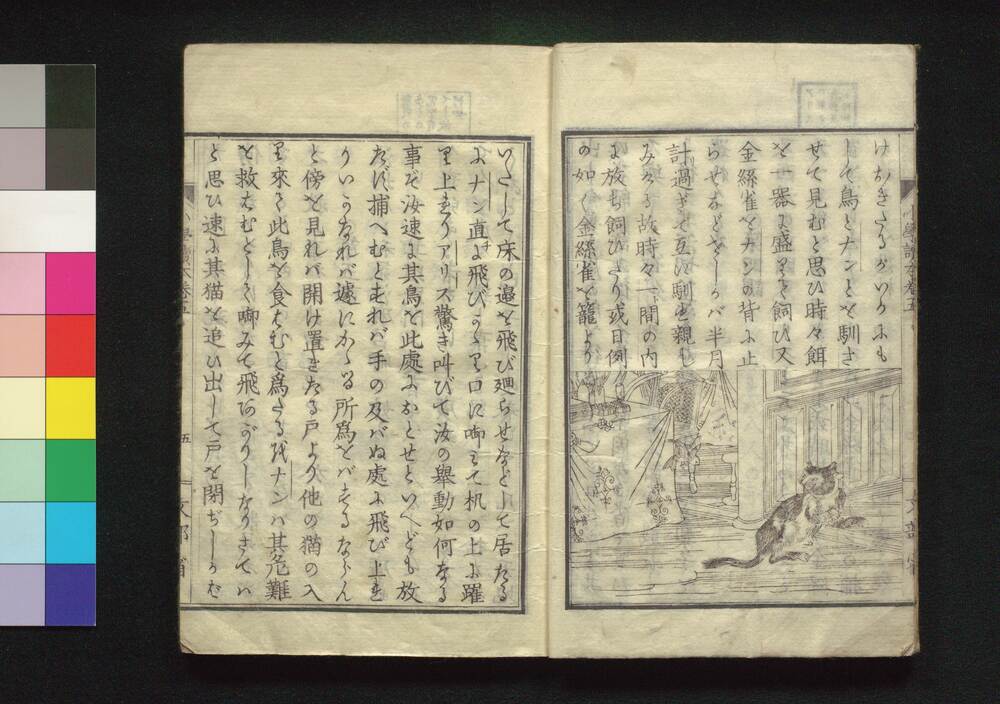 けおきたるがいかにも
して鳥とナンとを馴さ
せて見むと思ひ時々餌
を一器に盛りてを飼ひ又
金絲雀をナンの背に止
らせなどをしるバ半月
計過ぎて互に馴れ親し
みたる故時々一間の内
に放ち飼ひたり或日例
の如く金絲雀を籠より
いだして床の邊を飛び廻らせなどして居たる
にナン直に飛びかゝり口に啣へて机の上に躍
り上れりアリス驚き叫びて汝の舉動如何なる
事ぞ汝速に其鳥を此處におとせといへども放
たず捕へむとすれバ手の及バぬ處に飛び上れ
りいかなれバ遽にかゝる所爲をバするならん
と傍を見れバ開け置きたる戸より他の猫の入
り來て此鳥を食はむと爲たるをナンハ其危難
を救はむとしく啣みて飛びあがりしなりさてハ
と思ひ速に其猫を追ひ出して戸を閉ぢしかば
小學讀本卷五
五
文部省